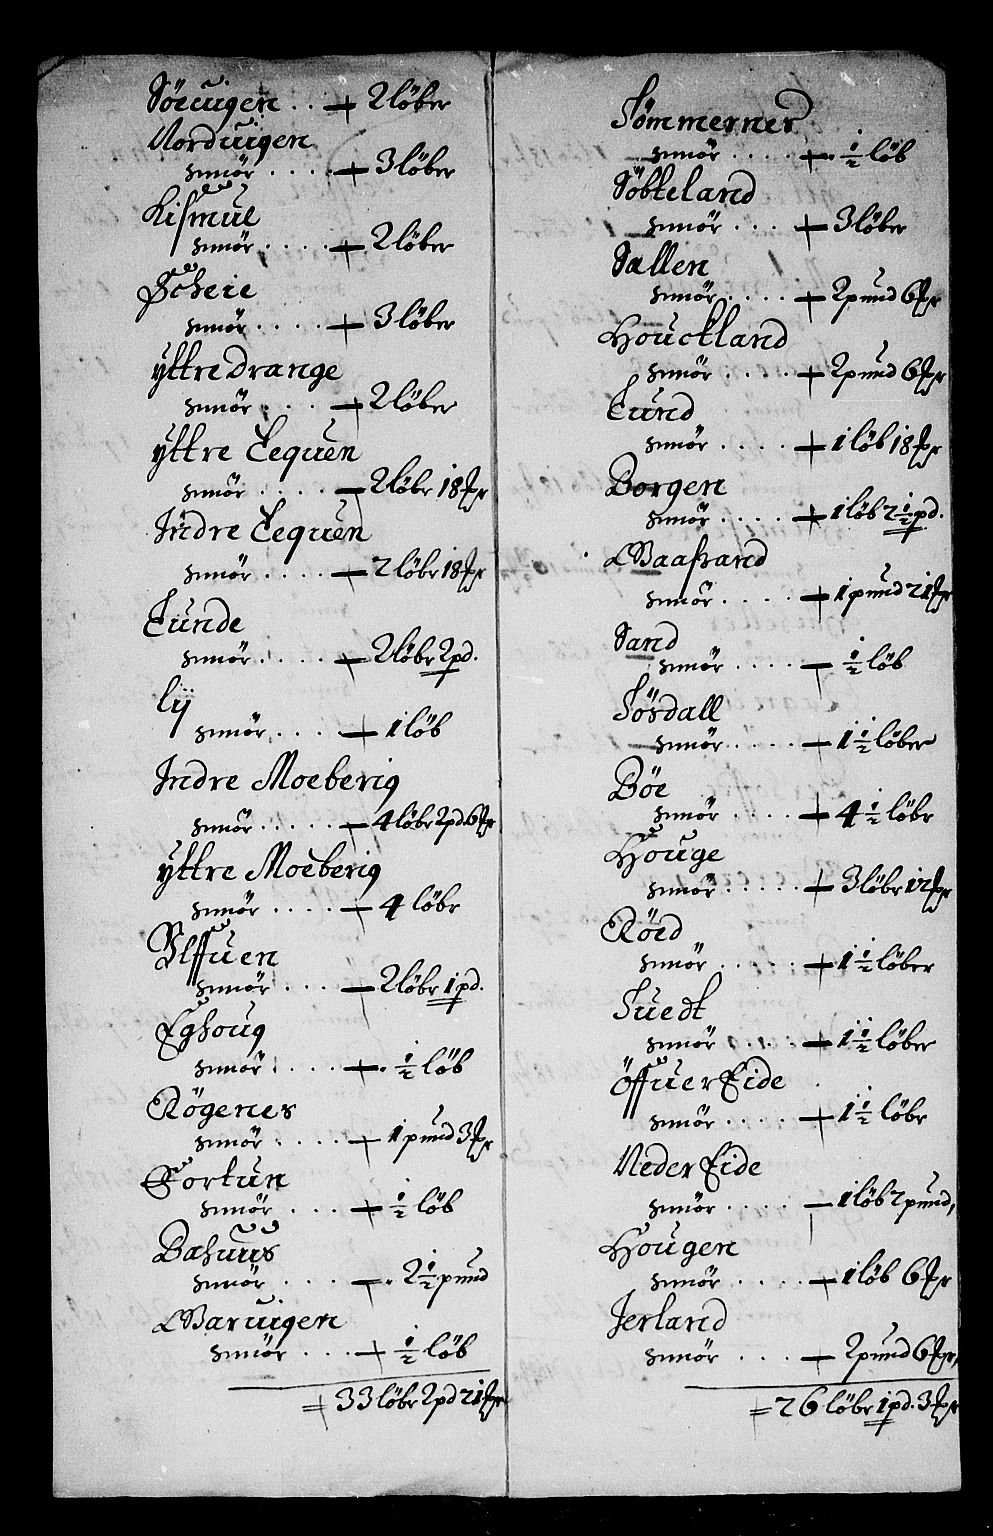 Söeuigen . . . 2 löber
Norduigen
smör . . . . 3 löber
Kismul
smör . . . . 2 löber
Scheie
smör . . . . 3 löber
yttre Drange
smör . . . . 2 löber
yttre Lequen
smör . . . . 2 löbr 18 
Indre Lequen
smör . . . . 2 löbr 18 
Lunde
smör . . . . 2 löbr 2 pd.
Lij
smör . . . . 1 löb
Indre Moeberig
smör . . . . 4 löbr 2 pd. 6 
yttre Moeberig
smör . . . . 4 löbr
Ulffuen
smör . . . . 2 löbr 1 pd.
Eghoug
smör . . . . ½ löb
Rögenes
smör . . . . 1 pund 3 
Fortun
smör . . . . ½ löb
Bahuus
smör . . . . 2½ pund
Baruigen
smör . . . . ½ löb
= 33 löbr 2 pd 21 
Sömmerner
smör . . . . ½ löb
Söbteland
smör . . . . 3 löber
Sællen
smör . . . . 2 pund 6 
Houckland
smör . . . . 2 pund 6 
Lund
smör . . . . 1 löb 18 
Borgen
smör . . . . 1 löb 2½ pd.
Baassand
smör . . . . 1 pund 21 
Sand
smör . . . . ½ löb
Sösdall
smör . . . . 1½ löber
Böe
smör . . . . 4½ löbr
Houge
smör . . . . 3 löbr 12 
Röed
smör . . . . 1½ löber
Tuedt
smör . . . . 1½ löber
Öffuer Eide
smör . . . . 1½ löbr
Neder Eide
smör . . . . 1 löb 2 pund,
Hougen
smör . . . . 1 löb 6 
Jerland
smör . . . . 2 pund 6 
= 26 löbr 1 pd. 3